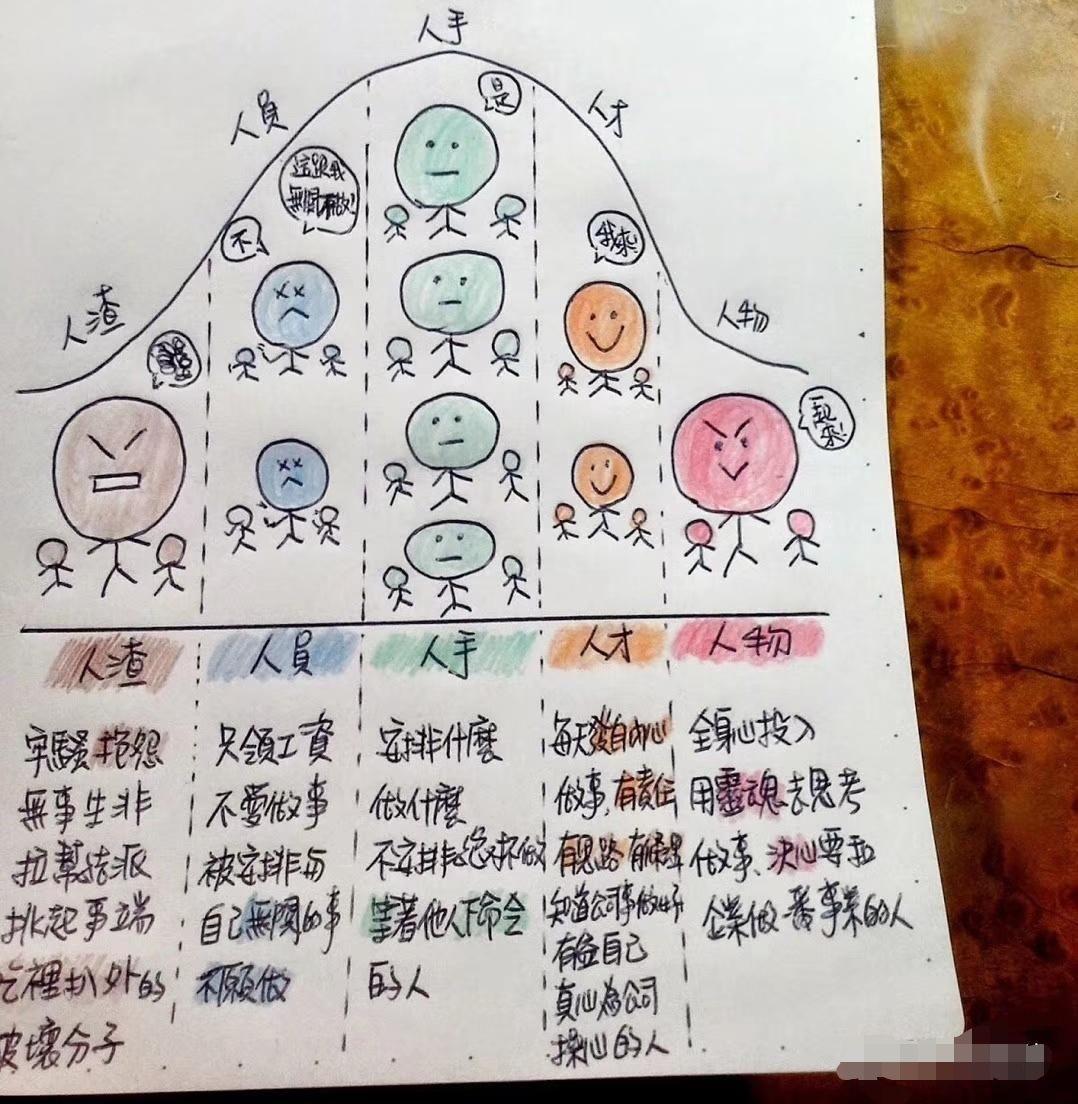 人手
人員
人才
人渣
人物
是
這跟我
無關不做!
不
我來!
一起
來!
人渣
人員
人手
人才
人物
牢騷抱怨
無事生非
拉幫結派
挑起事端
吃裡扒外的
破壞分子
只領工資
不愛做事
被安排与
自己無關的事
不願做
安排什麼
做什麼
不安排絕対不做
等著他人下命令
的人
每天發自內心
做事,有責任
有思路有條理
知道公司事做好
有益自己
真心為公司
操心的人
全身心投入
用靈魂去思考
做事、決心要和
企業做一番事業的人